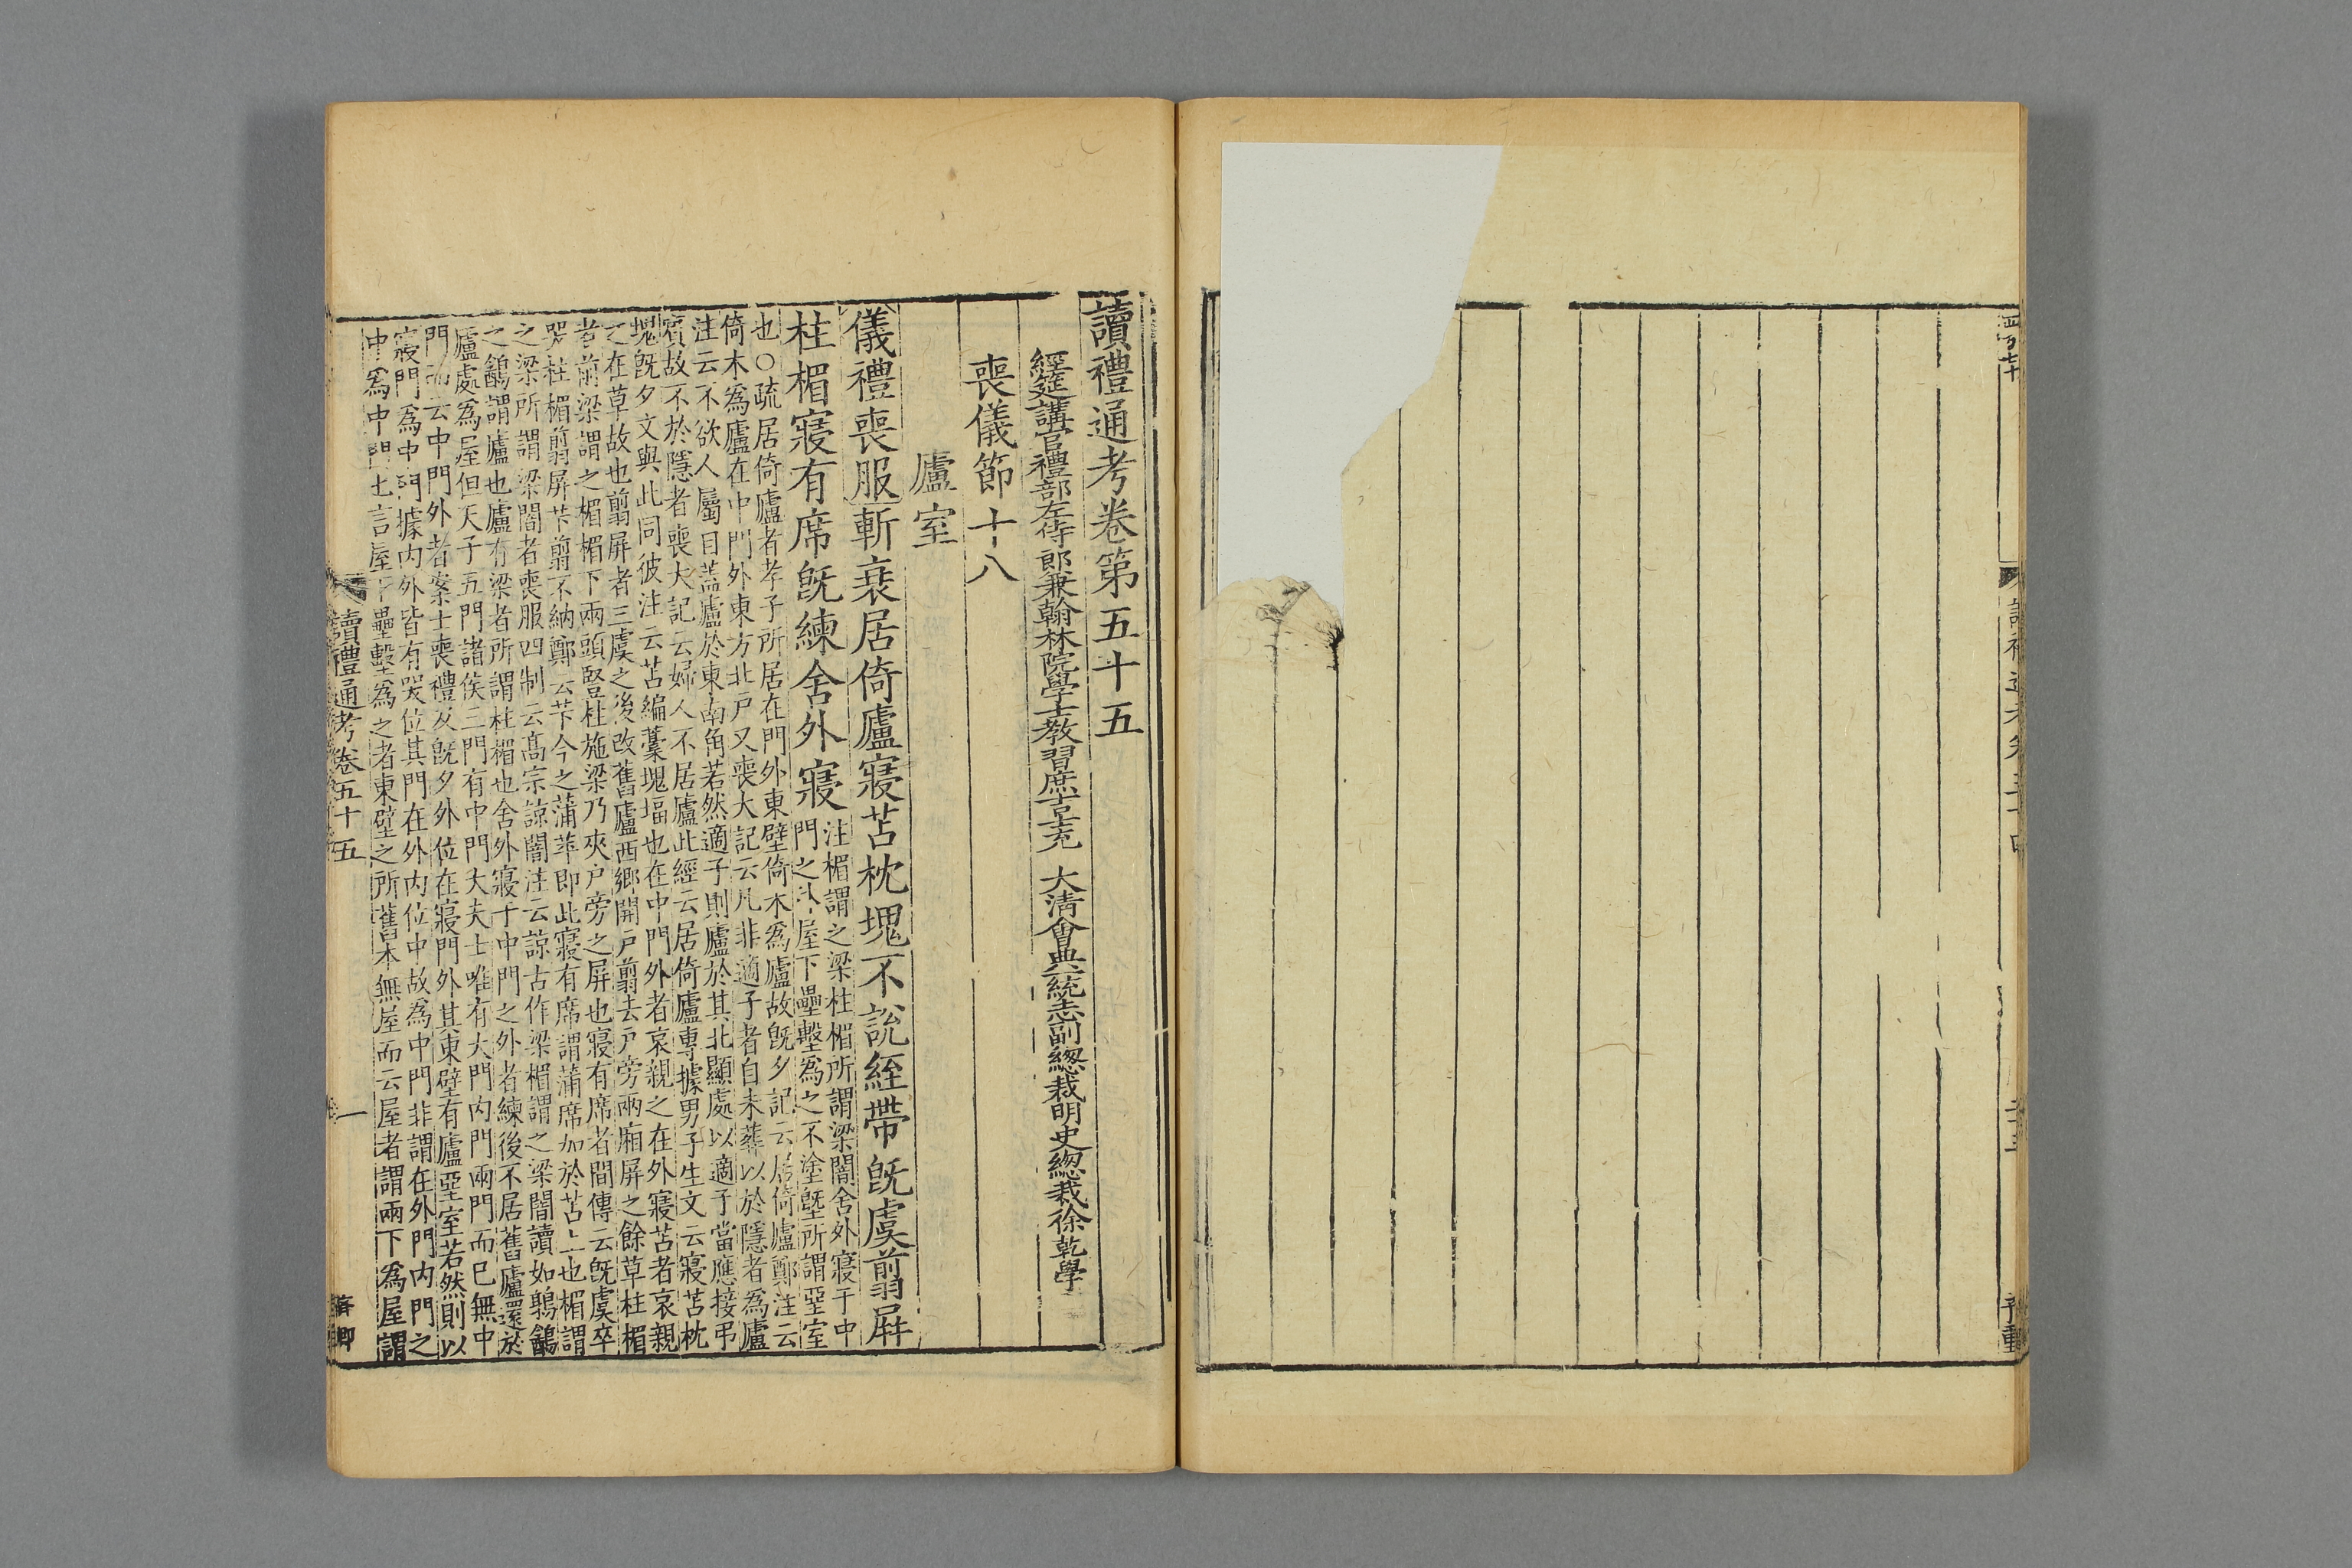 讀禮通考卷第五十五
經筵講官禮部左侍郎兼翰林院學士教習庶吉士充 大清會典一統志副總裁明史總裁徐乾學
喪儀節十八
廬室
儀禮喪服斬衰居倚廬寢苫枕塊不說絰帶旣虞翦屏
柱楣寢有席旣練舍外寢
注楣謂之梁柱楣所謂梁闇舍外寢于中
門之外屋下壘墼爲之不塗塈所謂堊室
也○疏居倚廬者孝子所居在門外東壁倚木爲廬故旣夕記云居倚廬鄭注云
倚木爲廬在中門外東方北戶又喪大記云凡非適子者自未葬以於隱者爲廬
注云不欲人屬目蓋廬於東南角若然適子則廬於其北顯處以適子當應接弔
賓故不於隱者喪大記云婦人不居廬此經云居倚廬專據男子生文云寢苫枕
塊旣夕文與此同彼注云苫編藁塊堛也在中門外者哀親之在外寢苫者哀親
之在草故也翦屏者三虞之後改舊廬西鄉開戶翦去戶旁兩廂屏之餘草柱楣
者前梁謂之楣楣下兩頭竪柱施梁乃夾戶旁之屏也寢有席者間傳云旣虞卒
哭柱楣翦屏芐翦不納鄭云芐今之蒲苹即此寢有席謂蒲席加於苫上也楣謂
之梁所謂梁闇者喪服四制云高宗諒闇注云諒古作梁楣謂之梁闇讀如鶉鷂
之鷂謂廬也廬有梁者所謂柱楣也舍外寢于中門之外者練後不居舊廬還於
廬處爲屋但天子五門諸侯三門有中門大夫士唯有大門內門兩門而已無中
門而云中門外者案士喪禮及旣夕外位在寢門外其東壁有廬堊室若然則以
寢門爲中門據內外皆有哭位其門在外內位中故爲中門非謂在外門內門之
中爲中門也言屋下壘墼爲之者東壁之所舊本無屋而云屋者謂兩下爲屋謂
讀禮通考卷五十五
一